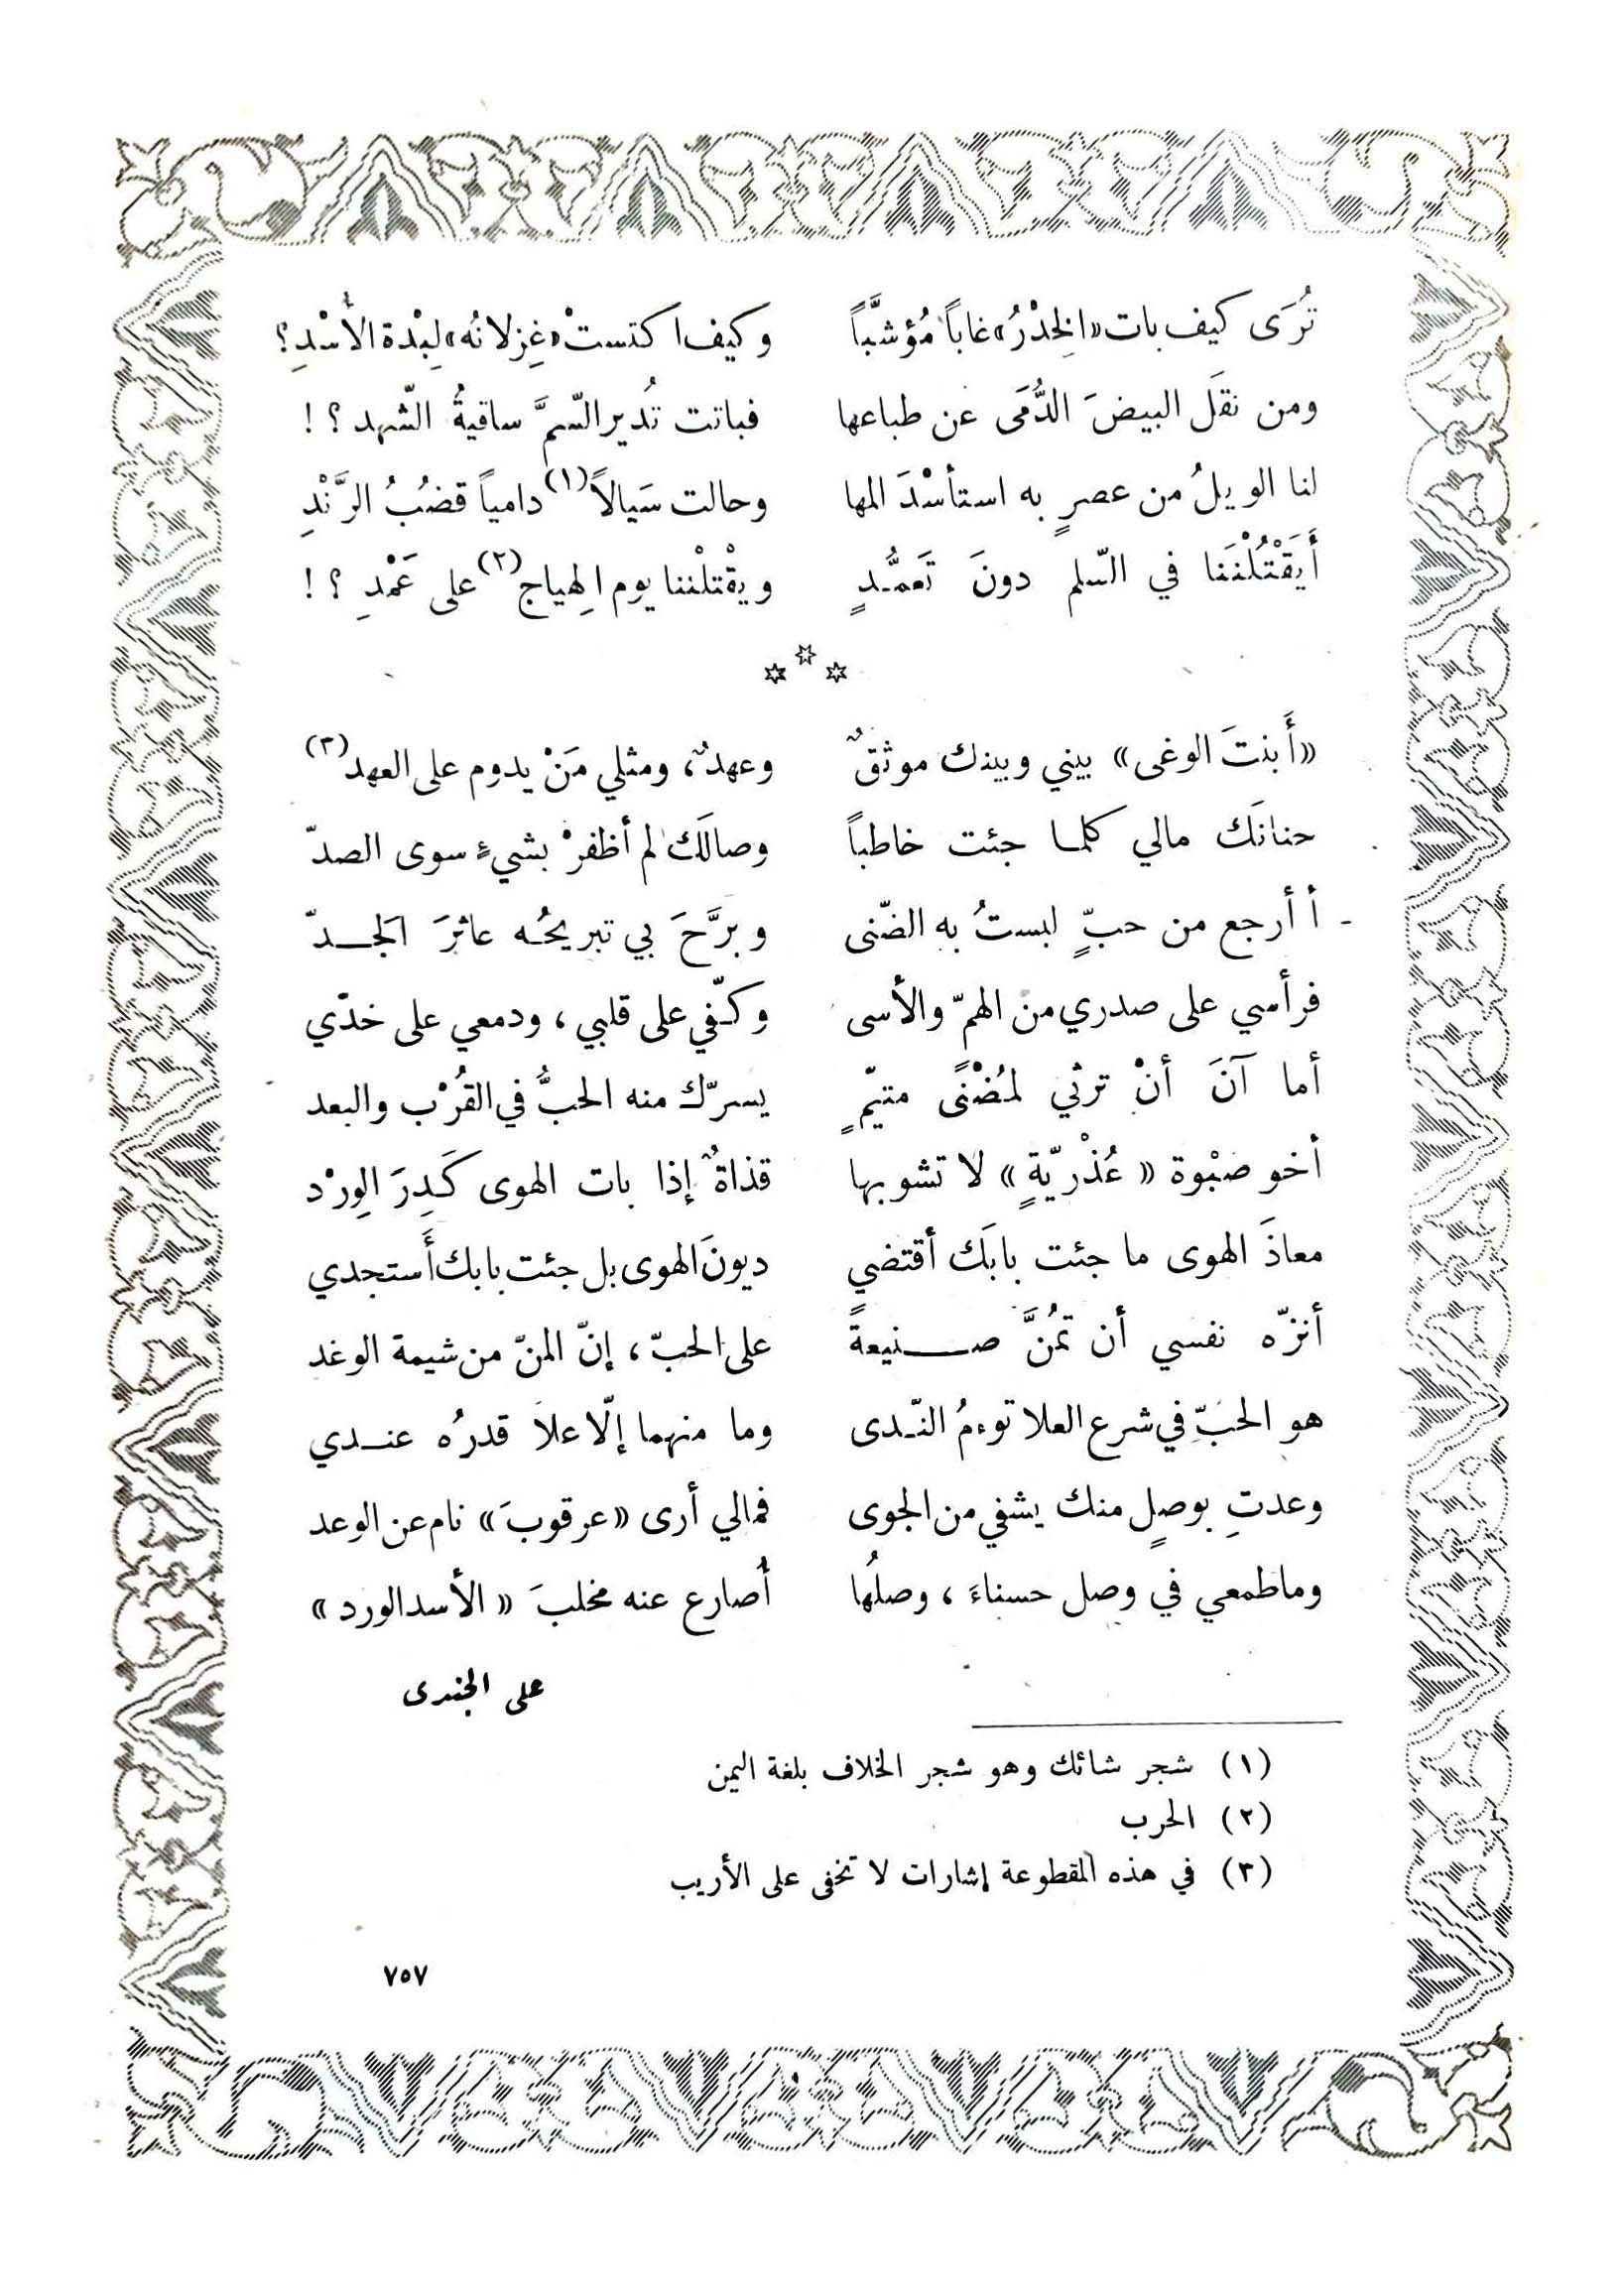 تُرَى كيف بات «الخِدْرُ» غاباً مُؤشَّباً وكيف اكتستْ «غِزلانُه» لِبْدة الأُسْدِ؟
ومن نقَل البيضَ الدُّمَى عن طباعها فباتت تُدير السّمَّ ساقيةُ الشّهد؟!
لنا الويلُ من عصرٍ به استأسْدَ المها وحالت سَيالاً(١) دامياً قضُبُ الرَّنْدِ
أَيَقْتُلْنَنا في السّلم دونَ تَعمُّدٍ ويقْتلْننا يوم الهِياج(٢) على عَمْدِ؟!
***
«أَبنتَ الوغى» بيني وبينك موثقٌ وعهدٌ، ومثلي مَنْ يدوم على العهد(٣)
حنانَك مالي كلما جئت خاطباً وصالَك لم أظفرْ بشيءٍ سوى الصدّ
أأرجع من حبٍّ لبستُ به الضّنى وبرَّحَ بي تبريحُه عاثرَ الجَدّ
فرأسي على صدري من الهمّ والأسى وكفّي على قلبي، ودمعي على خدّي
أما آنَ أنْ ترثي لمُضْنًى متيّمٍ يسرّك منه الحبُّ في القُرْب والبعد
أخو صَبْوة «عُذْريّةٍ» لا تشوبها قذاةٌ إذا بات الهوى كَدِرَ الوِرْد
معاذَ الهوى ما جئت بابَك أقتضي ديونَ الهوى بل جئت بابك أَستجدي
أنزّه نفسي أن تمُنَّ صنيعةً على الحبّ، إنّ المنّ من شيمة الوغد
هو الحبّ في شرع العلا توءمُ النّدى وما منهما إلّا علا قدرُه عندي
وعدتِ بوصلٍ منك يشفي من الجوى فمالي أرى «عرقوبَ» نام عن الوعد
وما طمعي في وصل حسناءَ، وصلُها أُصارع عنه مخلبَ «الأسد الورد»
على الجندى
(١) شجر شائك وهو شجر الخلاف بلغة اليمن
(٢) الحرب
(٣) في هذه المقطوعة إشارات لا تخفى على الأريب
٧٥٧